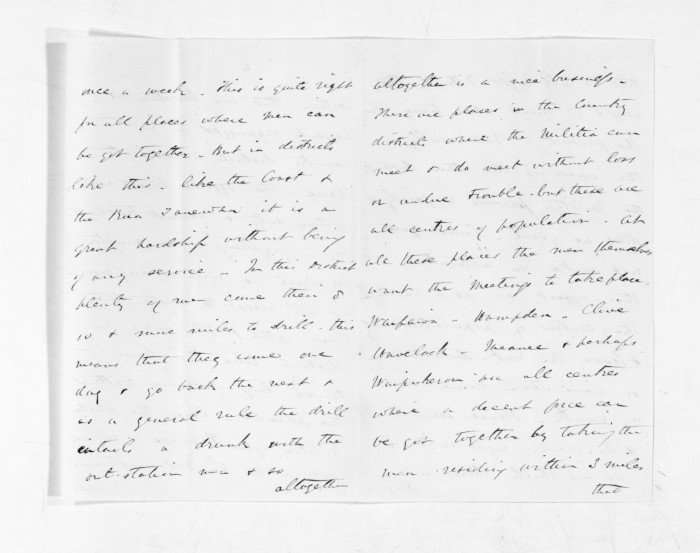 once a week. This is quite right
for all places where men can
be got together. But in districts
like this. like the Coast &
the Rua Taniwha it is a
great hardship without being
of any service. In this District
plenty of men come their 8
10 & more miles to drill. this
means that they come one
day & go back the next &
as a general rule the drill
entails a drunk with the
out-station men & so
altogether
altogether is a nice business.
There are places in the Country
districts where the Militia can
meet & do meet without loss
or undue trouble. but these are
all centres of population. At
all these places the men themselves
want the Meetings to take place.
Waipawa - Hampden - Clive
Havelock - Meanee & perhaps
Waipukurau are all centres
where a decent force can
be got together by taking the
men residing within 3 miles
that